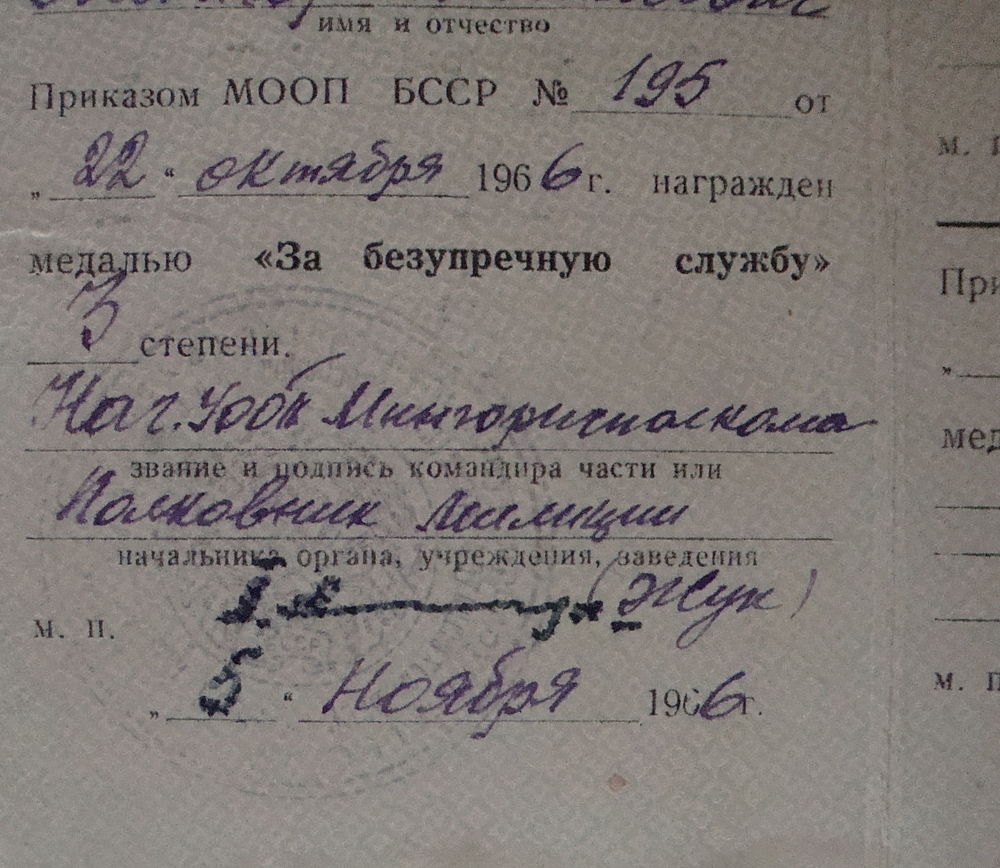 имя и отчество
Приказом МООП БССР № 195 от
„22“ октября 1966 г. награжден
медалью «За безупречную службу»
3 степени.
Нач. Уооп Мингорисполкома
звание и подпись командира части или
Полковник милиции
начальника органа, учреждения, заведения
(Жук)
м. п.
„5“ Ноября 1966 г.
м. П
При
„
мед
м. П